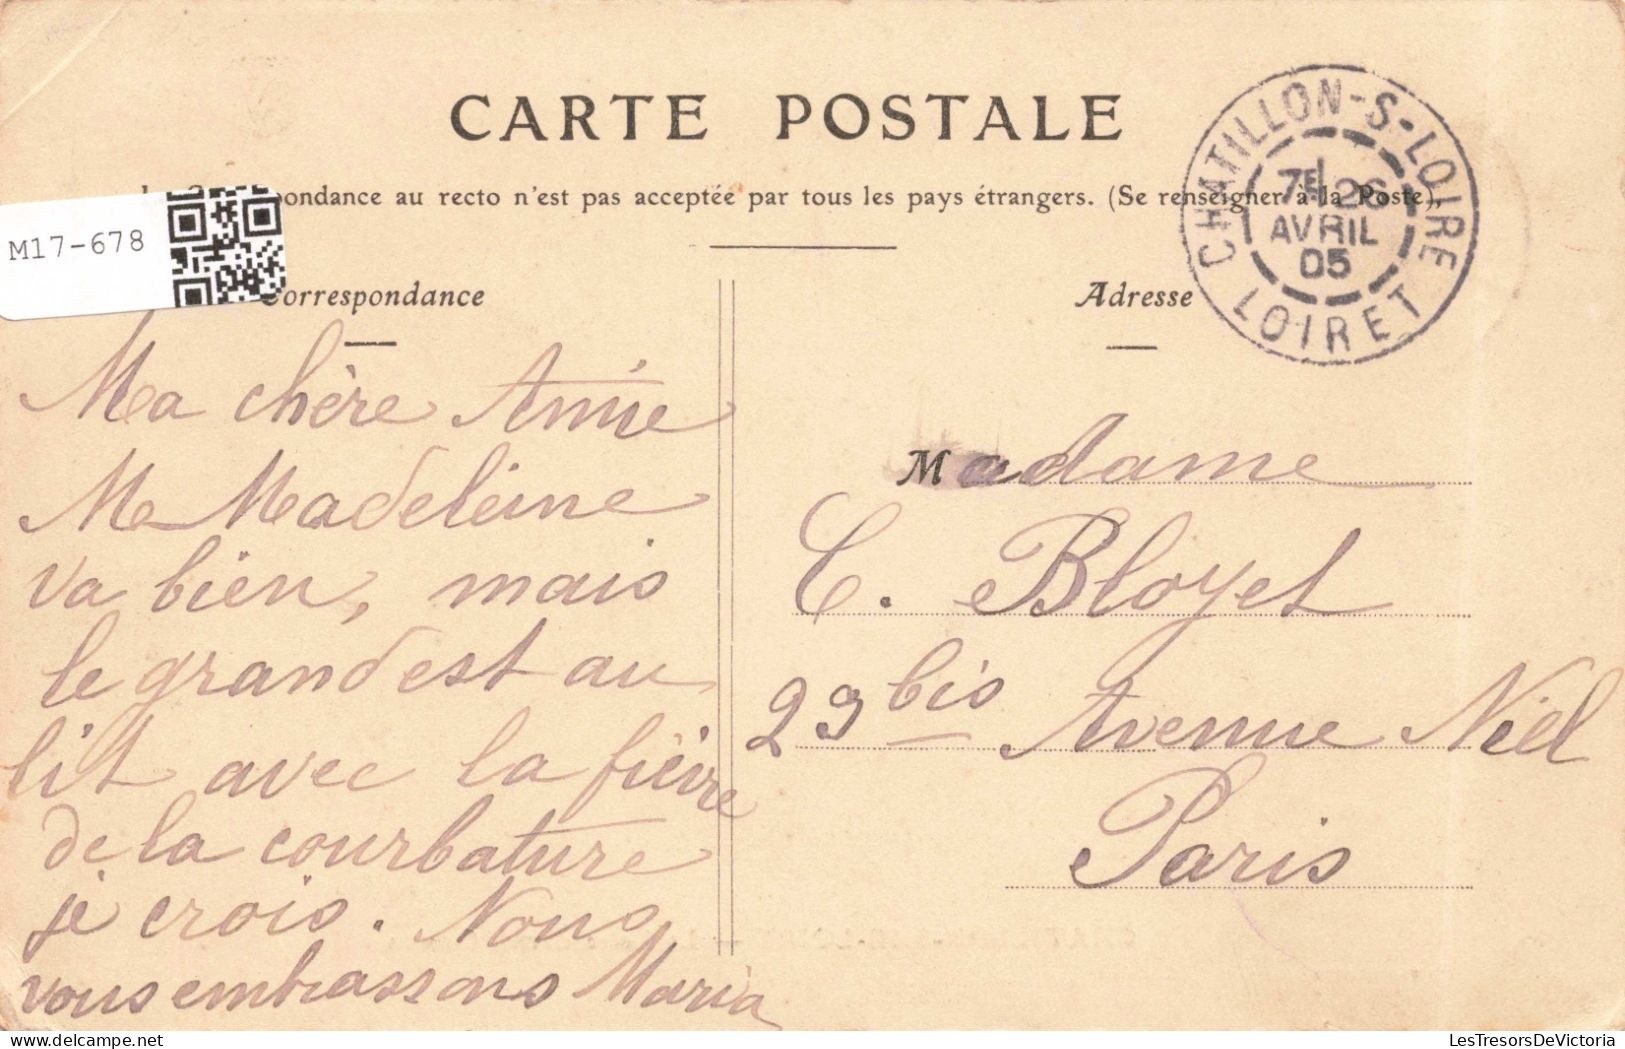 CARTE POSTALE
ondance au recto n'est pas acceptée par tous les pays étrangers. (Se renseigner à la Poste),
M17-678
CHATILLON-S-LOIRE
7E 26
AVRIL
05
LOIRET
Correspondance
Ma chère Annie
Me Madeleine
va bien, mais
le grand est au
lit avec la fièvre
de la courbature
je crois. Nous
vous embrassons Maria
Adresse
Madame
C. Bloyet
29 bis Avenue Niel
Paris
LesTresorsDeVictoria